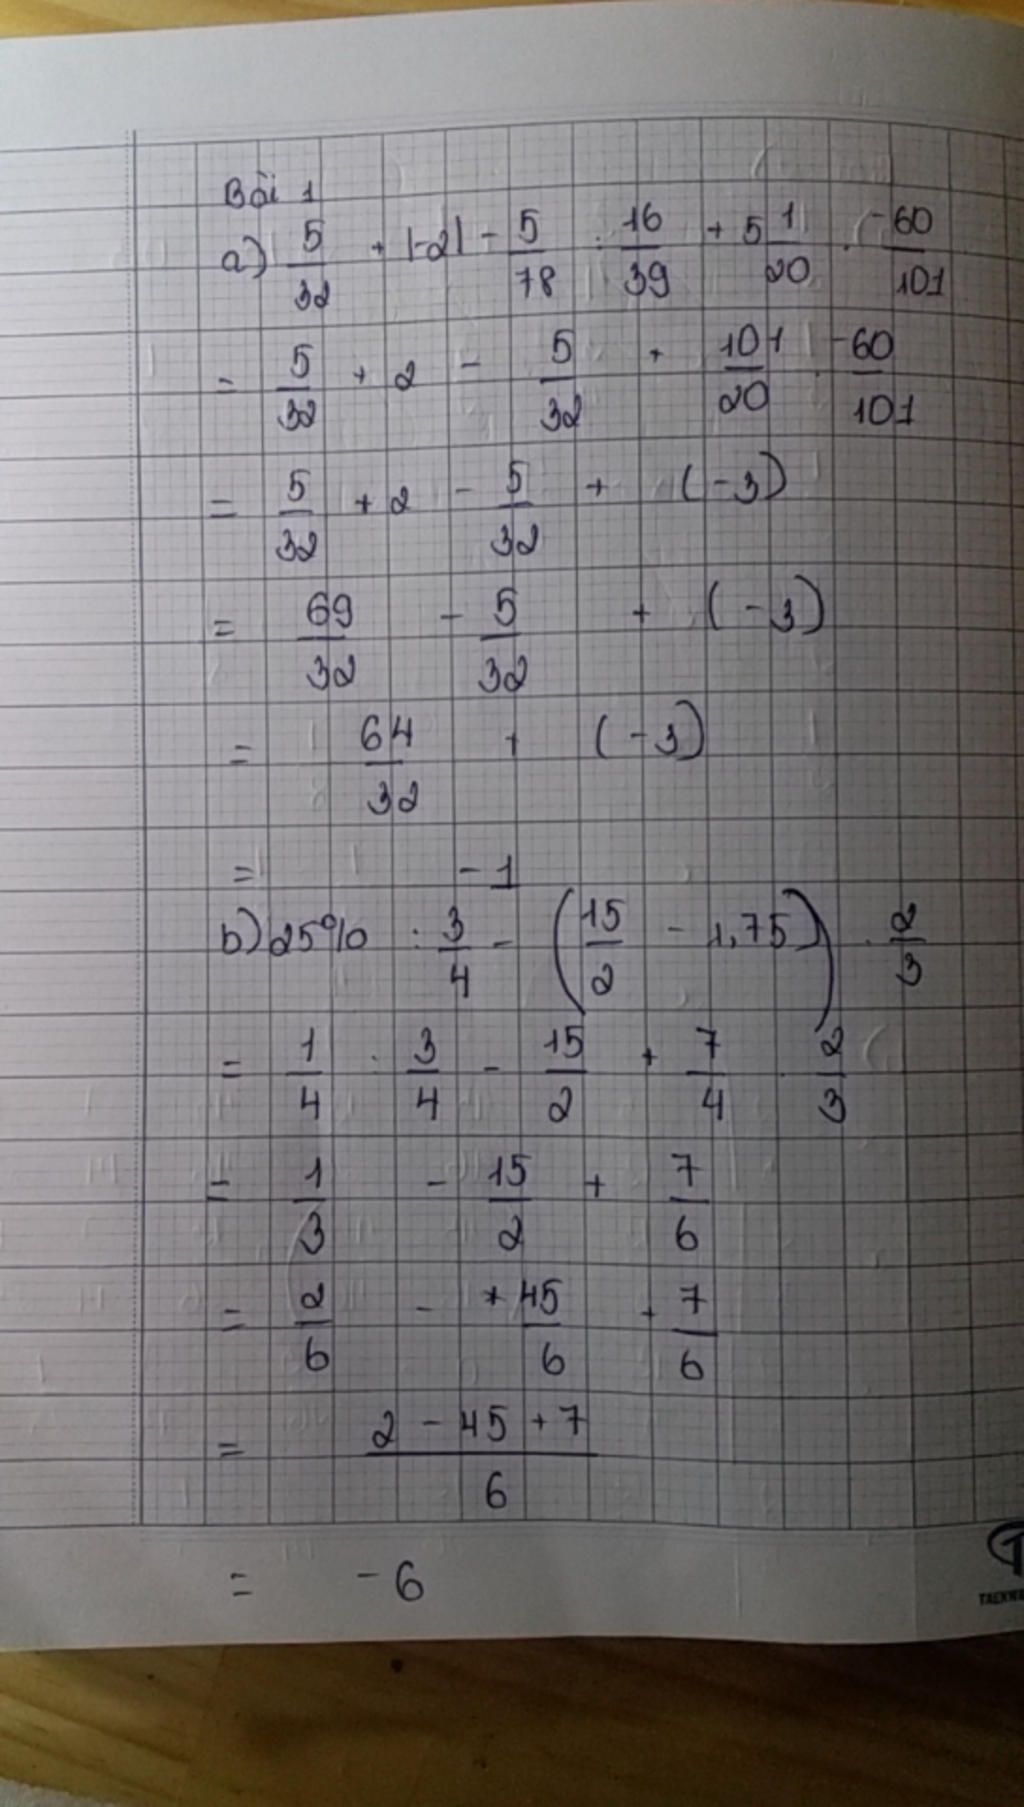 Bài 1
a) 5/32 + |-2| - 5/78 : 16/39 + 5 1/20 . -60/101
= 5/32 + 2 - 5/32 + 101/20 . -60/101
= 5/32 + 2 - 5/32 + (-3)
= 69/32 - 5/32 + (-3)
= 64/32 + (-3)
= -1
b) 25% : 3/4 - (15/2 - 1,75) . 2/3
= 1/4 : 3/4 - 15/2 + 7/4 . 2/3
= 1/3 - 15/2 + 7/6
= 2/6 - 45/6 + 7/6
= (2 - 45 + 7)/6
= -6